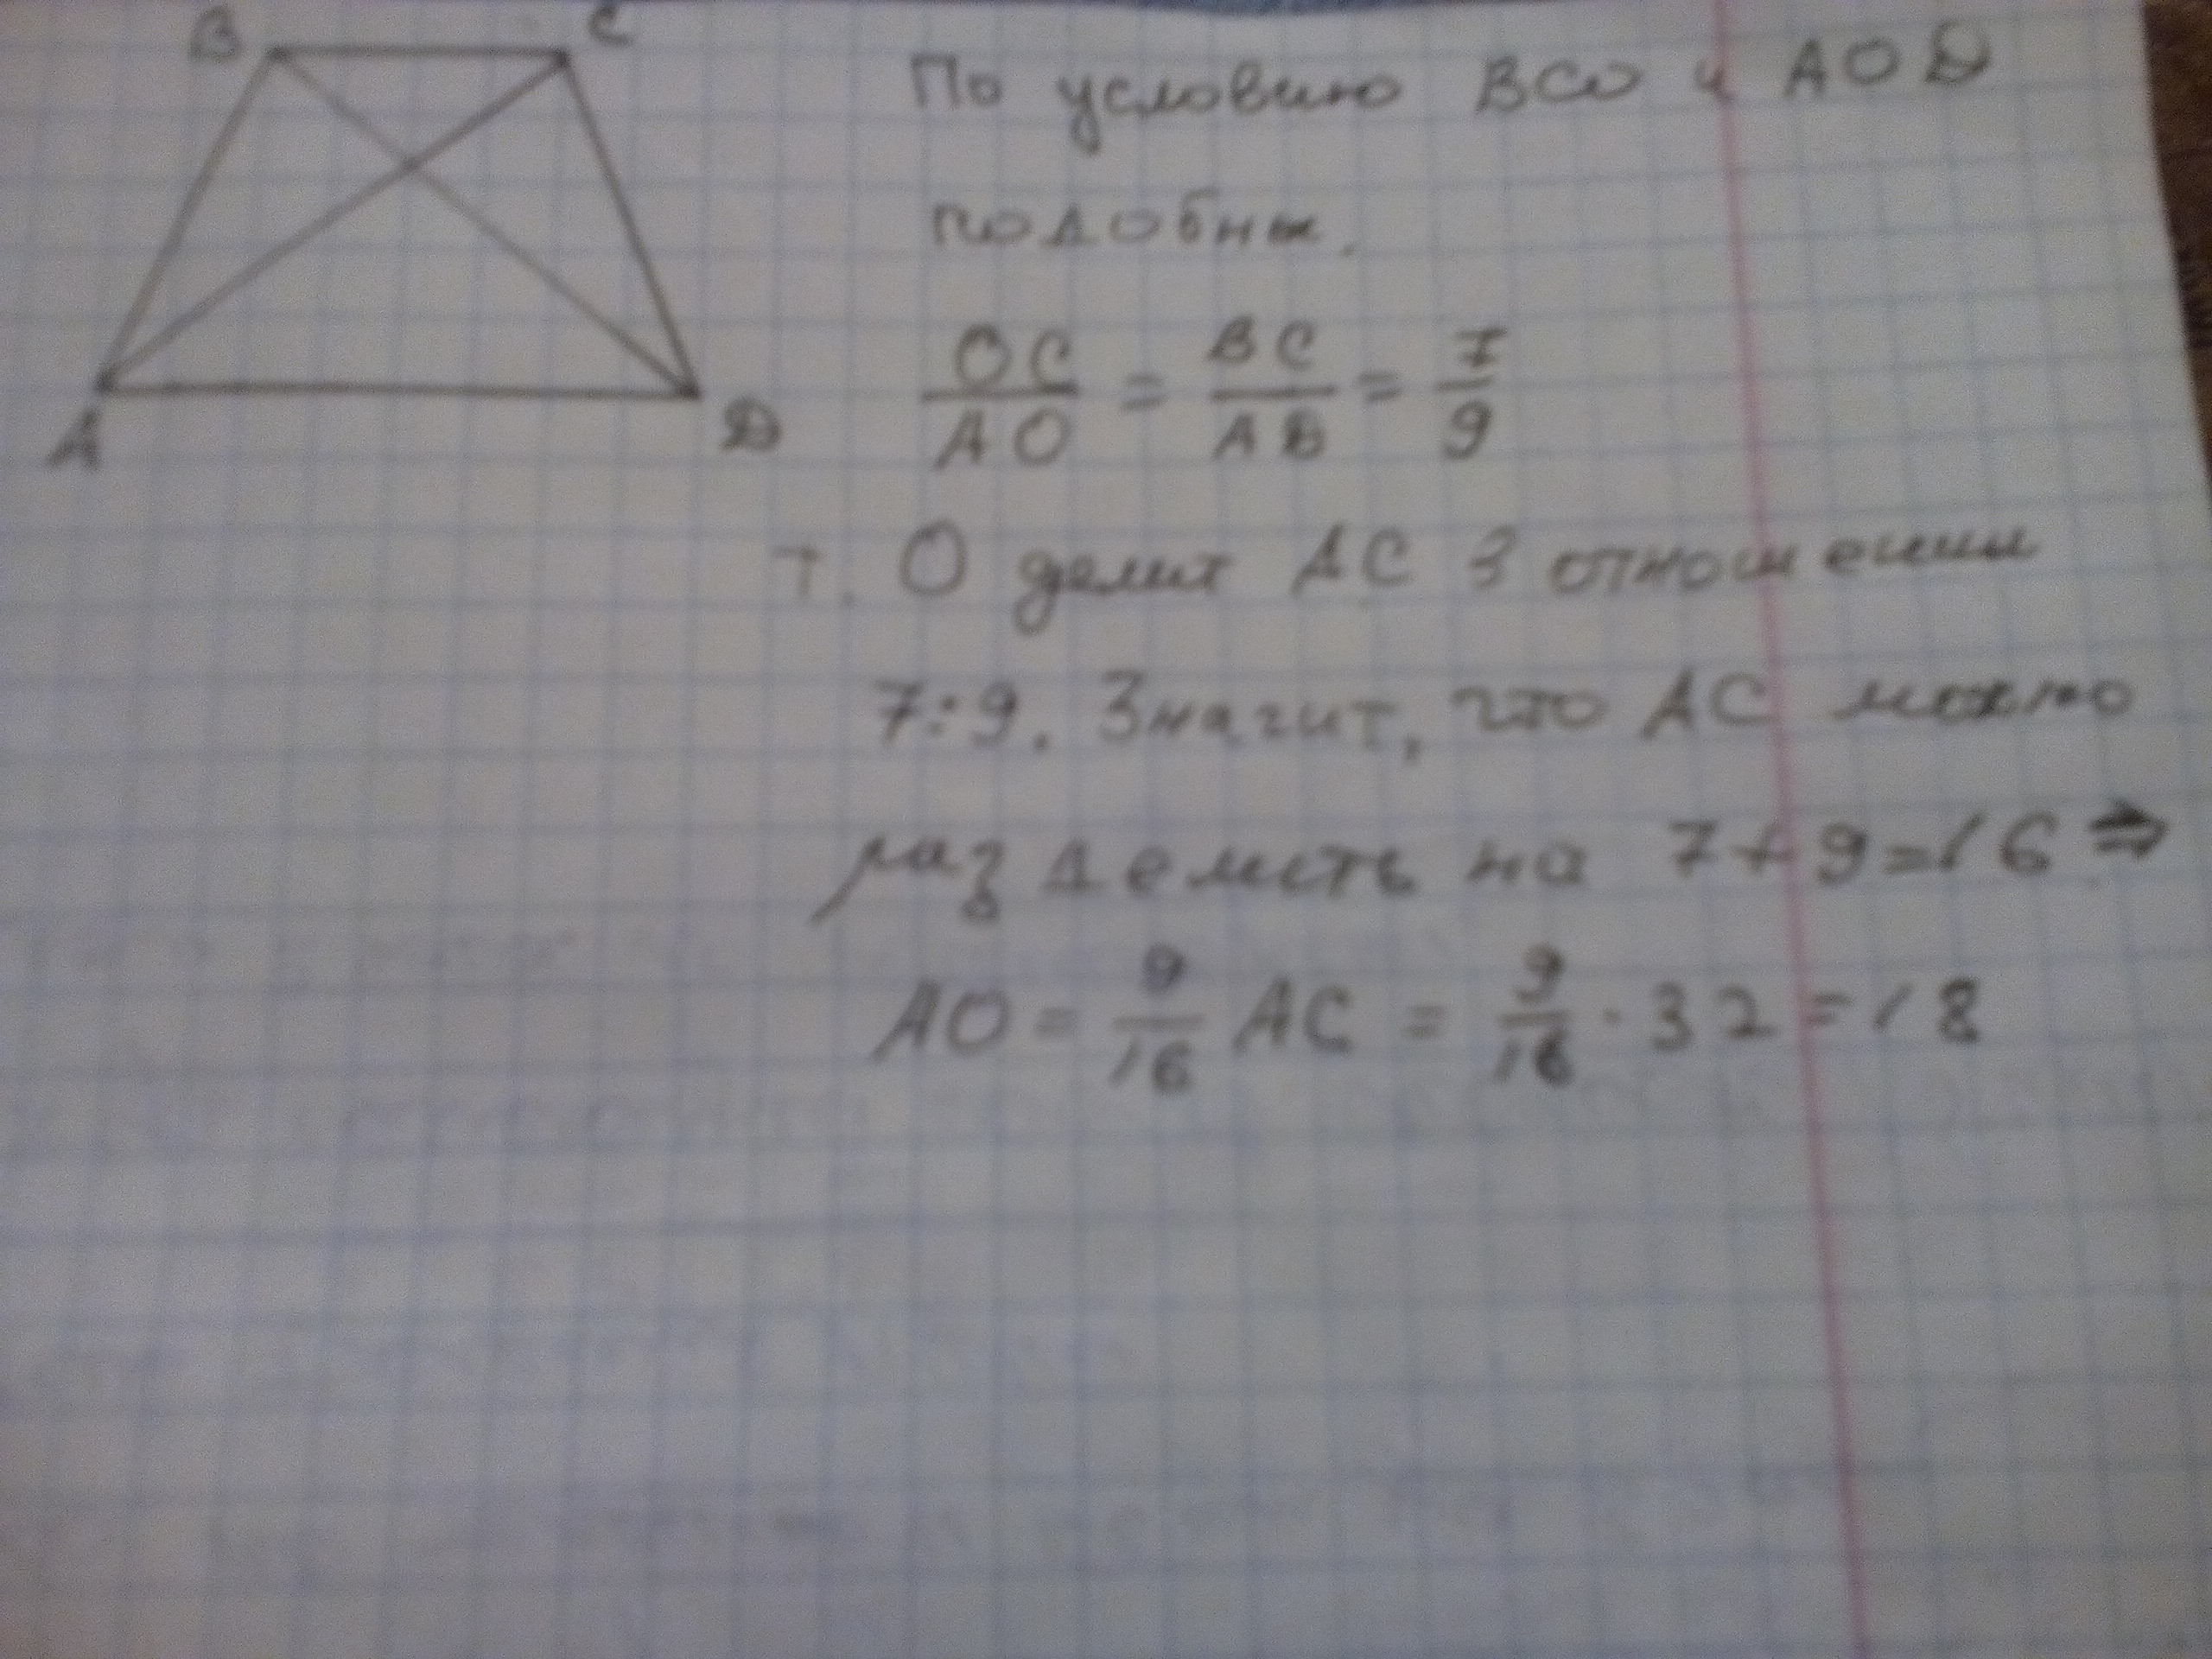 B C
A D
По условию BCO и AOD
подобны.
OC/AO = BC/AD = 7/9
т. О делит AC в отношении
7:9. Значит, что AC можно
разделить на 7+9=16 ⇒
AO = 9/16 AC = 9/16 · 32 = 18